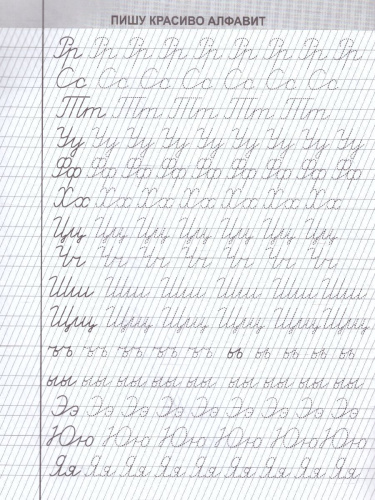 ПИШУ КРАСИВО АЛФАВИТ
Рр Рр Рр Рр Рр Рр Рр Рр Рр
Сс Сс Сс Сс Сс Сс Сс
Тт Тт Тт Тт Тт
Уу Уу Уу Уу Уу Уу Уу Уу Уу
Фф Фф Фф Фф Фф Фф Фф Фф Фф
Хх Хх Хх Хх Хх Хх Хх
Цц Цц Цц Цц Цц Цц Цц
Чч Чч Чч Чч Чч Чч Чч
Шш Шш Шш Шш Шш Шш
Щщ Щщ Щщ Щщ Щщ Щщ
ъъ ъъ ъъ ъъ ъъ ьь ьь ьь ьь ьь
ыы ыы ыы ыы ыы ыы ыы ыы ыы
Ээ Ээ Ээ Ээ Ээ Ээ Ээ Ээ Ээ
Юю Юю Юю Юю Юю Юю
Яя Яя Яя Яя Яя Яя Яя Яя Яя